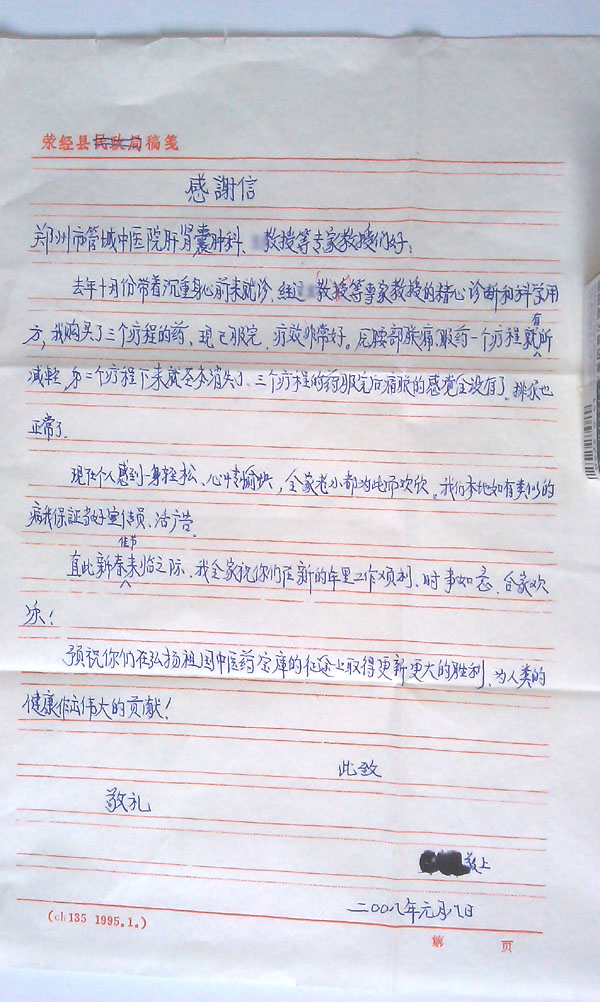 荥经县民政局稿笺
感謝信
郑州市管城中医院肝肾囊肿科、教授等专家教授们好：
去年十月份带着沉重身心前来就诊、经过教授等专家教授的精心诊断和科学用
方，我购买了三个疗程的药，现已服完，疗效非常好。尾腰部胀痛、服药一个疗程就有所
减轻，第二个疗程下来就基本消失了、三个疗程的药服完后痛胀的感觉全没有了。排尿也
正常了。
现在个人感到一身轻松、心情愉快，全家老小都为此而欢欣。我们本地如有类似的
病我保证当好宣传员、活广告。
直此新春佳节来临之际、我全家祝你们在新的年里工作顺利、时事如意、合家欢
乐！
预祝你们在弘扬祖国中医药宝库的征途上取得更新更大的胜利、为人类的
健康作出伟大的贡献！
此致
敬礼
敬上
二00八年元月八日
(cb 135 1995.1.)
第 页